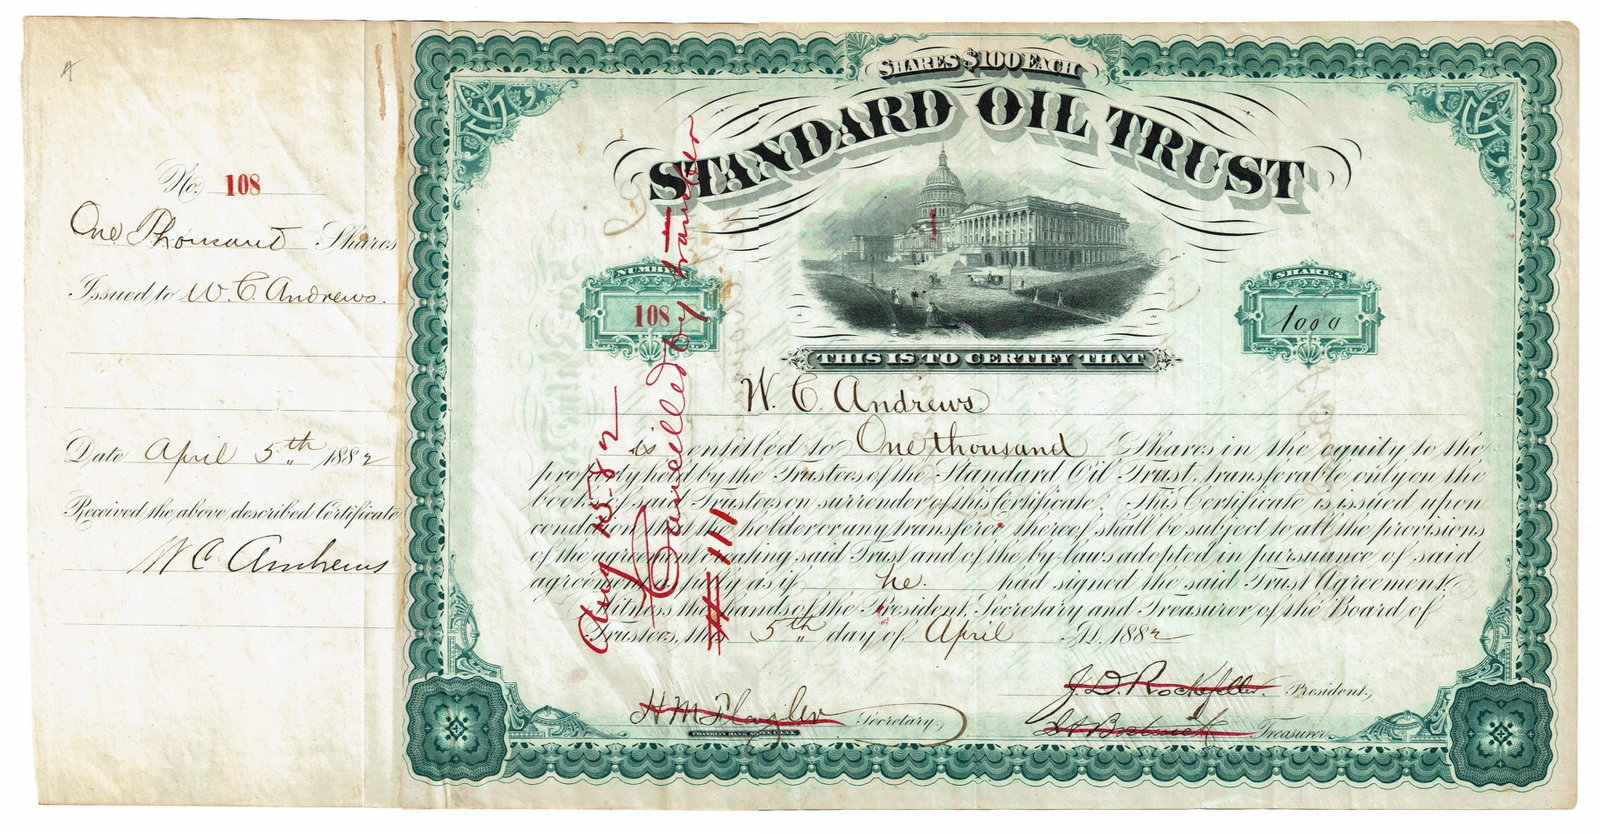 No. 108
One Thousand Shares
Issued to W. C. Andrews.
Date April 5th 1882
Received the above described Certificate
W C Andrews
SHARES $100 EACH
STANDARD OIL TRUST
NUMBER
108
SHARES
1000
THIS IS TO CERTIFY THAT
W. C. Andrews
is entitled to One thousand Shares in the equity to the
property held by the Trustees of the Standard Oil Trust, transferable only on the
books of said Trustees on surrender of this Certificate. This Certificate is issued upon
condition that the holder or any transferee thereof shall be subject to all the provisions
of the agreement creating said Trust and of the by-laws adopted in pursuance of said
agreement as fully as if he. had signed the said Trust Agreement.
Witness the hands of the President, Secretary and Treasurer of the Board of
Trustees, this 5th day of April A.D. 1882
J. D. Rockefeller President,
H M Flagler Secretary,
Treasurer.
FRANKLIN BANK NOTE CO. N.Y.
Cancelled by transfer
#111